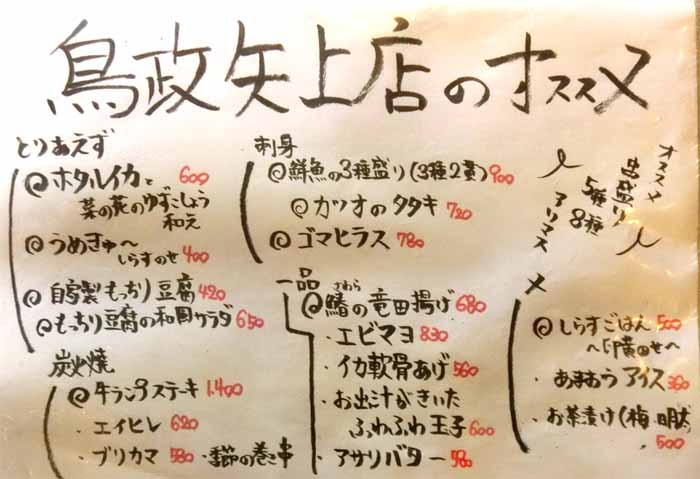 鳥政矢上店のオススメ
とりあえず
ホタルイカと 600
菜の花のゆずこしょう
和え
うめきゅ〜
しらすのせ 400
自家製もっちり豆腐 420
もっちり豆腐の和風サラダ 650
炭火焼
牛ランプステキ 1.400
・エイヒレ 620
・ブリカマ 580 ・季節の巻き串
刺身
鮮魚の3種盛り(3種2貫) 900
カツオのタタキ 720
ゴマヒラス 780
一品
さわら
鰆の竜田揚げ 680
・エビマヨ 830
・イカ軟骨あげ 560
・お出汁がきいた
ふわふわ玉子 600
・アサリバター 580
オススメ
串盛り
5種
8種
アリマス
〆
しらすごはん 500
〜卵黄のせ〜
・あまおうアイス 380
・お茶漬け(梅・明太)
500